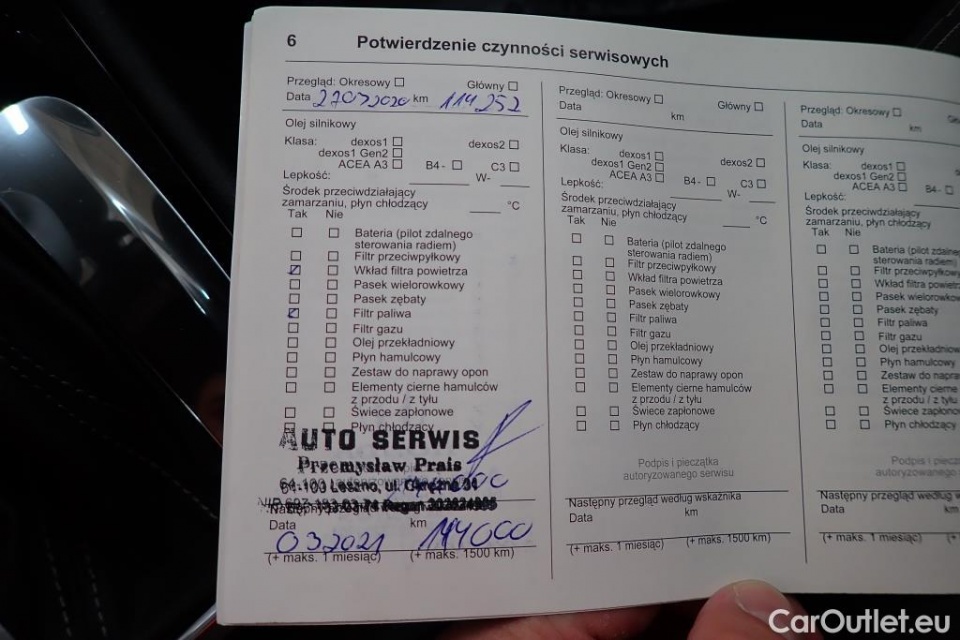 6 Potwierdzenie czynności serwisowych
Przegląd: Okresowy Główny
Data km 114 252
Olej silnikowy
Klasa: dexos1 dexos2
dexos1 Gen2
ACEA A3 B4 - C3
Lepkość: W-
Środek przeciwdziałający
zamarzaniu, płyn chłodzący °C
Tak Nie
Bateria (pilot zdalnego
sterowania radiem)
Filtr przeciwpyłkowy
Wkład filtra powietrza
Pasek wielorowkowy
Pasek zębaty
Filtr paliwa
Filtr gazu
Olej przekładniowy
Płyn hamulcowy
Zestaw do naprawy opon
Elementy cierne hamulców
z przodu / z tyłu
Świece zapłonowe
Płyn chłodzący
AUTO SERWIS
Przemysław Prais
Leszno, ul.
Następny przegląd
Data km
03 2021
(+ maks. 1 miesiąc) (+ maks. 1500 km)
Przegląd: Okresowy Główny
Data km
Olej silnikowy
Klasa: dexos1 dexos2
dexos1 Gen2
ACEA A3 B4 - C3
Lepkość: W-
Środek przeciwdziałający
zamarzaniu, płyn chłodzący °C
Tak Nie
Bateria (pilot zdalnego
sterowania radiem)
Filtr przeciwpyłkowy
Wkład filtra powietrza
Pasek wielorowkowy
Pasek zębaty
Filtr paliwa
Filtr gazu
Olej przekładniowy
Płyn hamulcowy
Zestaw do naprawy opon
Elementy cierne hamulców
z przodu / z tyłu
Świece zapłonowe
Płyn chłodzący
Podpis i pieczątka
autoryzowanego serwisu
Następny przegląd według wskaźnika
Data km
(+ maks. 1 miesiąc) (+ maks. 1500 km)
Przegląd: Okresowy
Data km
Olej silnikowy
Klasa: dexos1
dexos1 Gen2
ACEA A3 B4 -
Lepkość:
Środek przeciwdziałający
zamarzaniu, płyn chłodzący
Tak Nie
Bateria (pilot
sterowania radiem)
Filtr
Wkład filtra
Pasek wielorowkowy
Pasek zębaty
Filtr paliwa
Filtr gazu
Olej
Płyn hamulcowy
Zestaw do
Elementy cierne
z przodu / z tyłu
Świece
Płyn chłodzący
Podpis i
autoryzowanego
Następny przegląd według
Data km
(+ maks. 1 miesiąc) (+
CarOutlet.eu